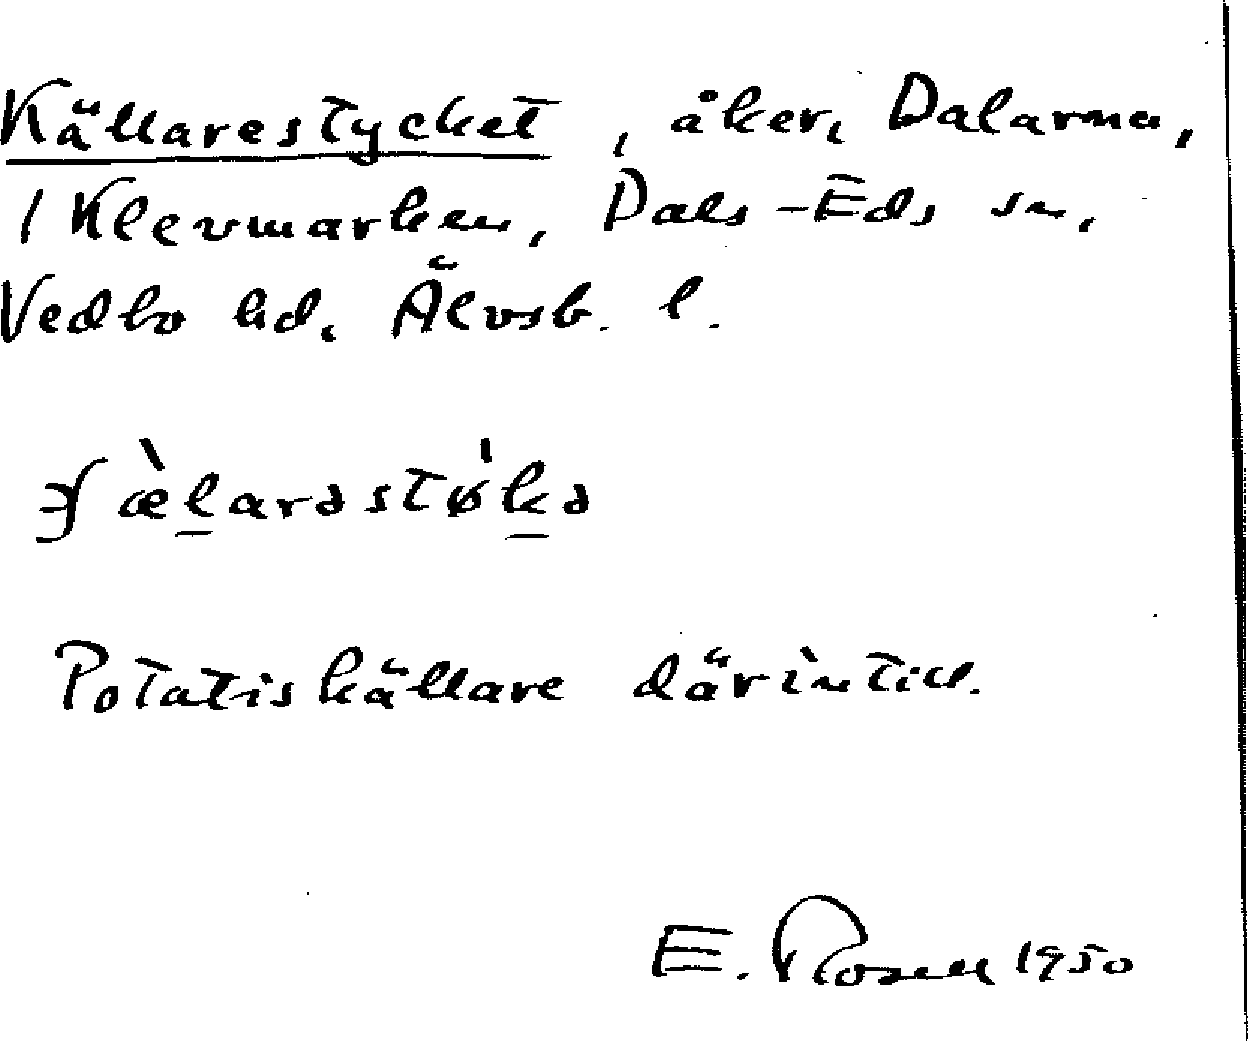 Källarestycket, åker, Dalarna,
1 Klevmarken, Dals-Eds sn,
Vedbo hd. Älvsb. l.
ʃæ̀l̲arəstø'k̲ə
Potatiskällare därintill.
E. Rosell 1950